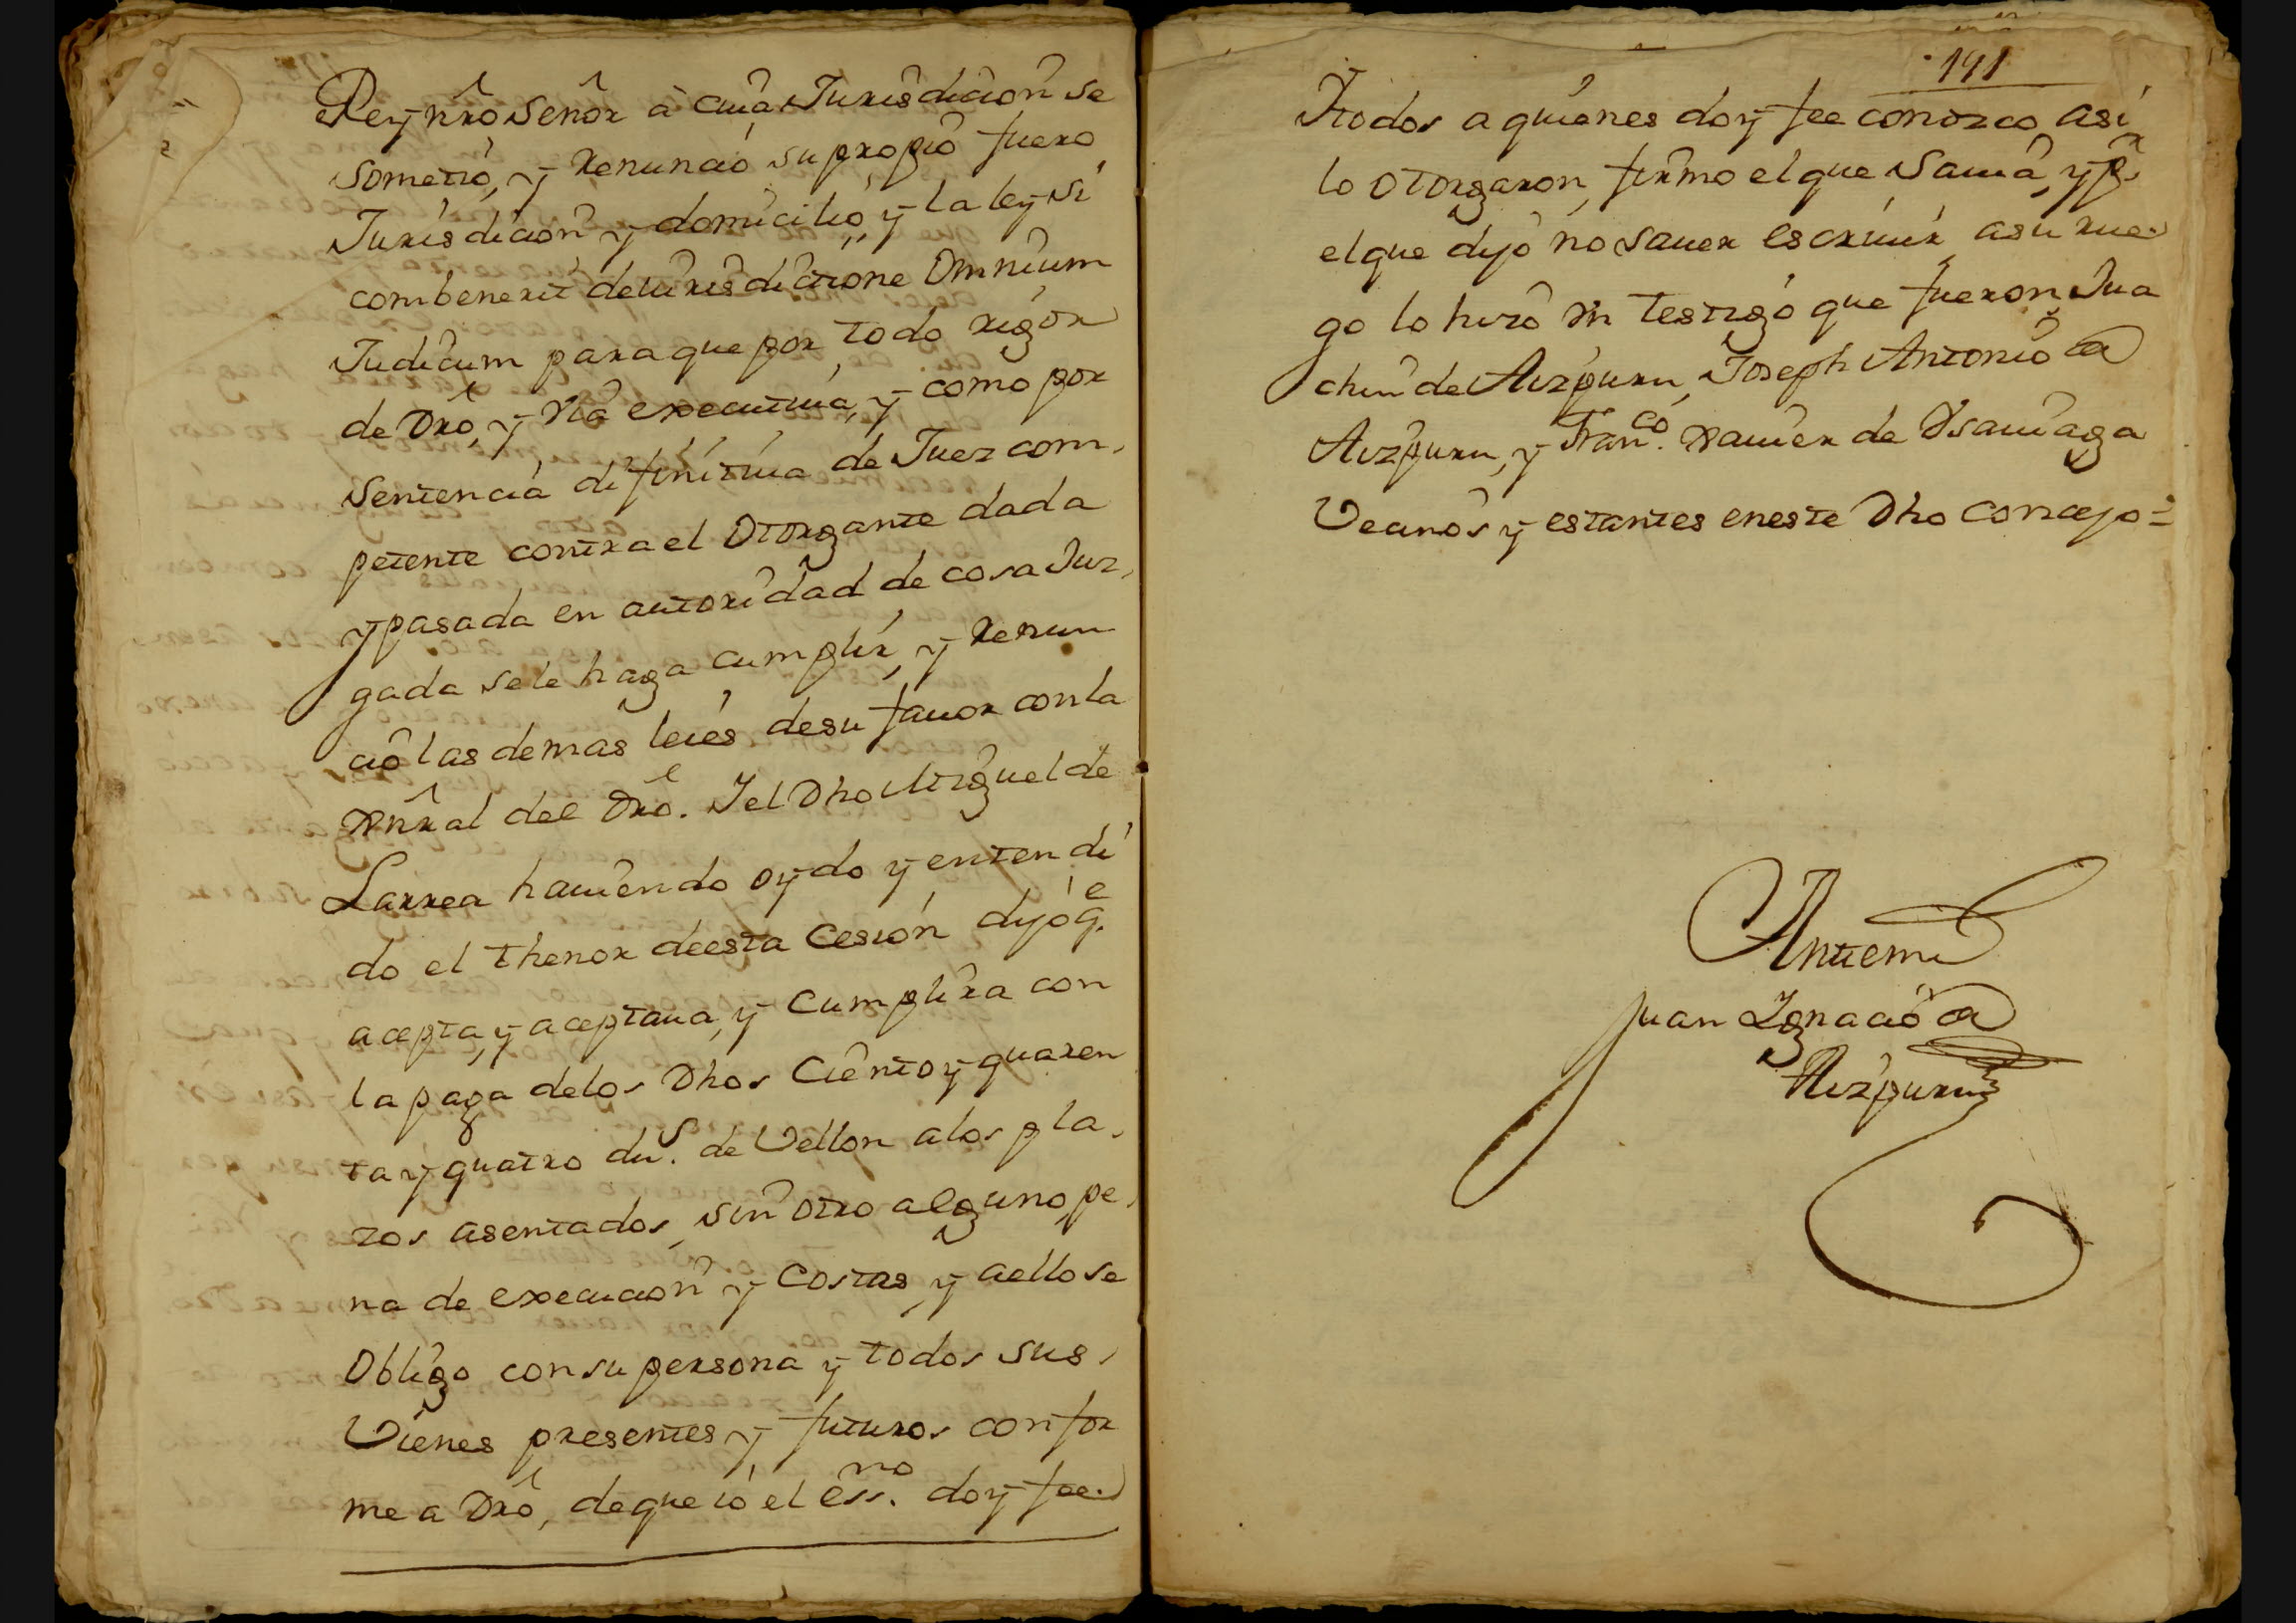 Rey nrô Señor à cuia Jurisdicion se
sometió, y Renunció su propio fuero
Jurisdicion y domicilio, y la ley si
combenerit de Iurisdictione Omnium
Judicum para que por todo rigor
de Drô, y Via executiua, y como por
Sentencia difinitiua de Juez com,
petente contra el Otorgante dada
y pasada en autoridad de cosa Juz,
gada se le haga cumplir, y Renun
ciô las demas leies de su fauor con la
Gnral del Drô. Y el Dho Miguel de
Larrea hauiendo oydo y entendi
do el thenor de esta Cesión dijo q.e
acepta, y aceptaua, y Cumplira con
la paga de los Dhos Ciento y quaren
ta y quatro du.s de Vellon a los pla,
zos asentados, sin otro alguno, pe,
na de execucion y Costas, y a ello se
Obligo con su persona y todos sus,
Vienes presentes y futuros confor
me a Drô, de que io el ess.no doy fee.
191
Y todos a quienes doy fee conozco, asi
lo Otorgaron, firmo el que Sauia, y p.r
el que dijo no sauer escriuir, a su rue
go lo hizo vn testigo que fueron Jua
chin de Aizpuru, Joseph Antonio de
Aizpuru, y Fran.co Xauier de Vsauiaga
Vecinos y estantes en este Dho Concejo =
Antemi
Juan Ignacio de
Aizpuru